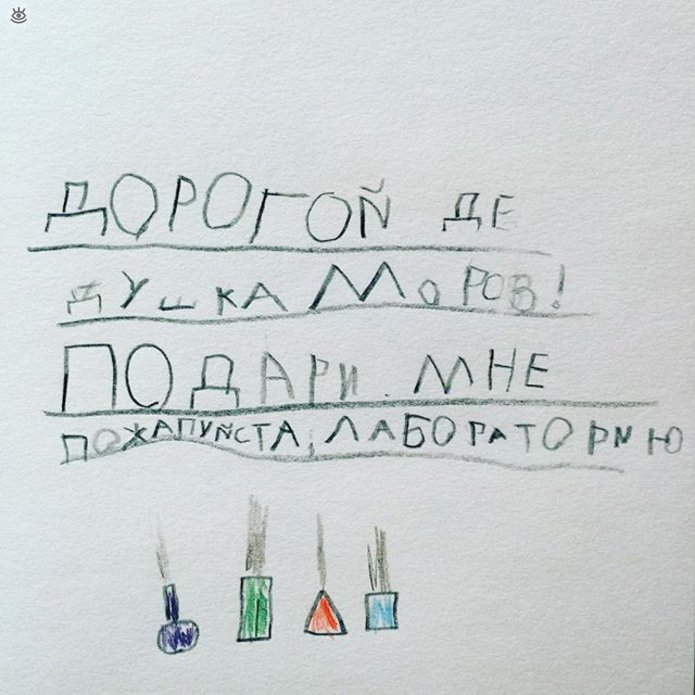 ДОРОГОЙ ДЕ
ДУШКА МОРОВ!
ПОДАРИ МНЕ
ПОЖАПУЙСТА, ЛАБОРАТОРИЮ